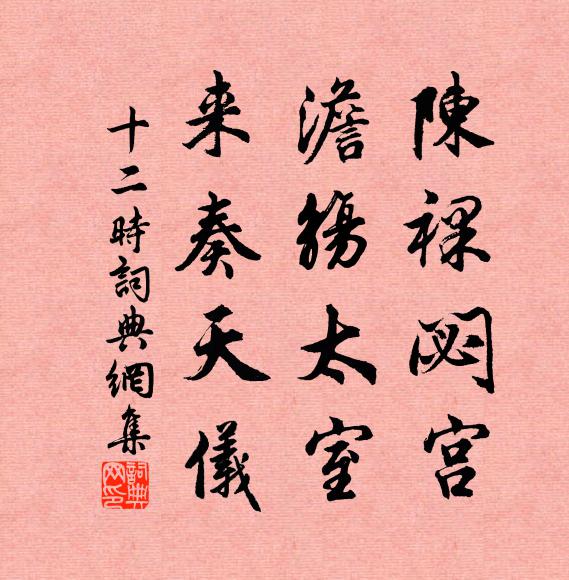 陳祼閟宮
澹觴太室
来奏天儀
十二時詞典網集
詞典网印